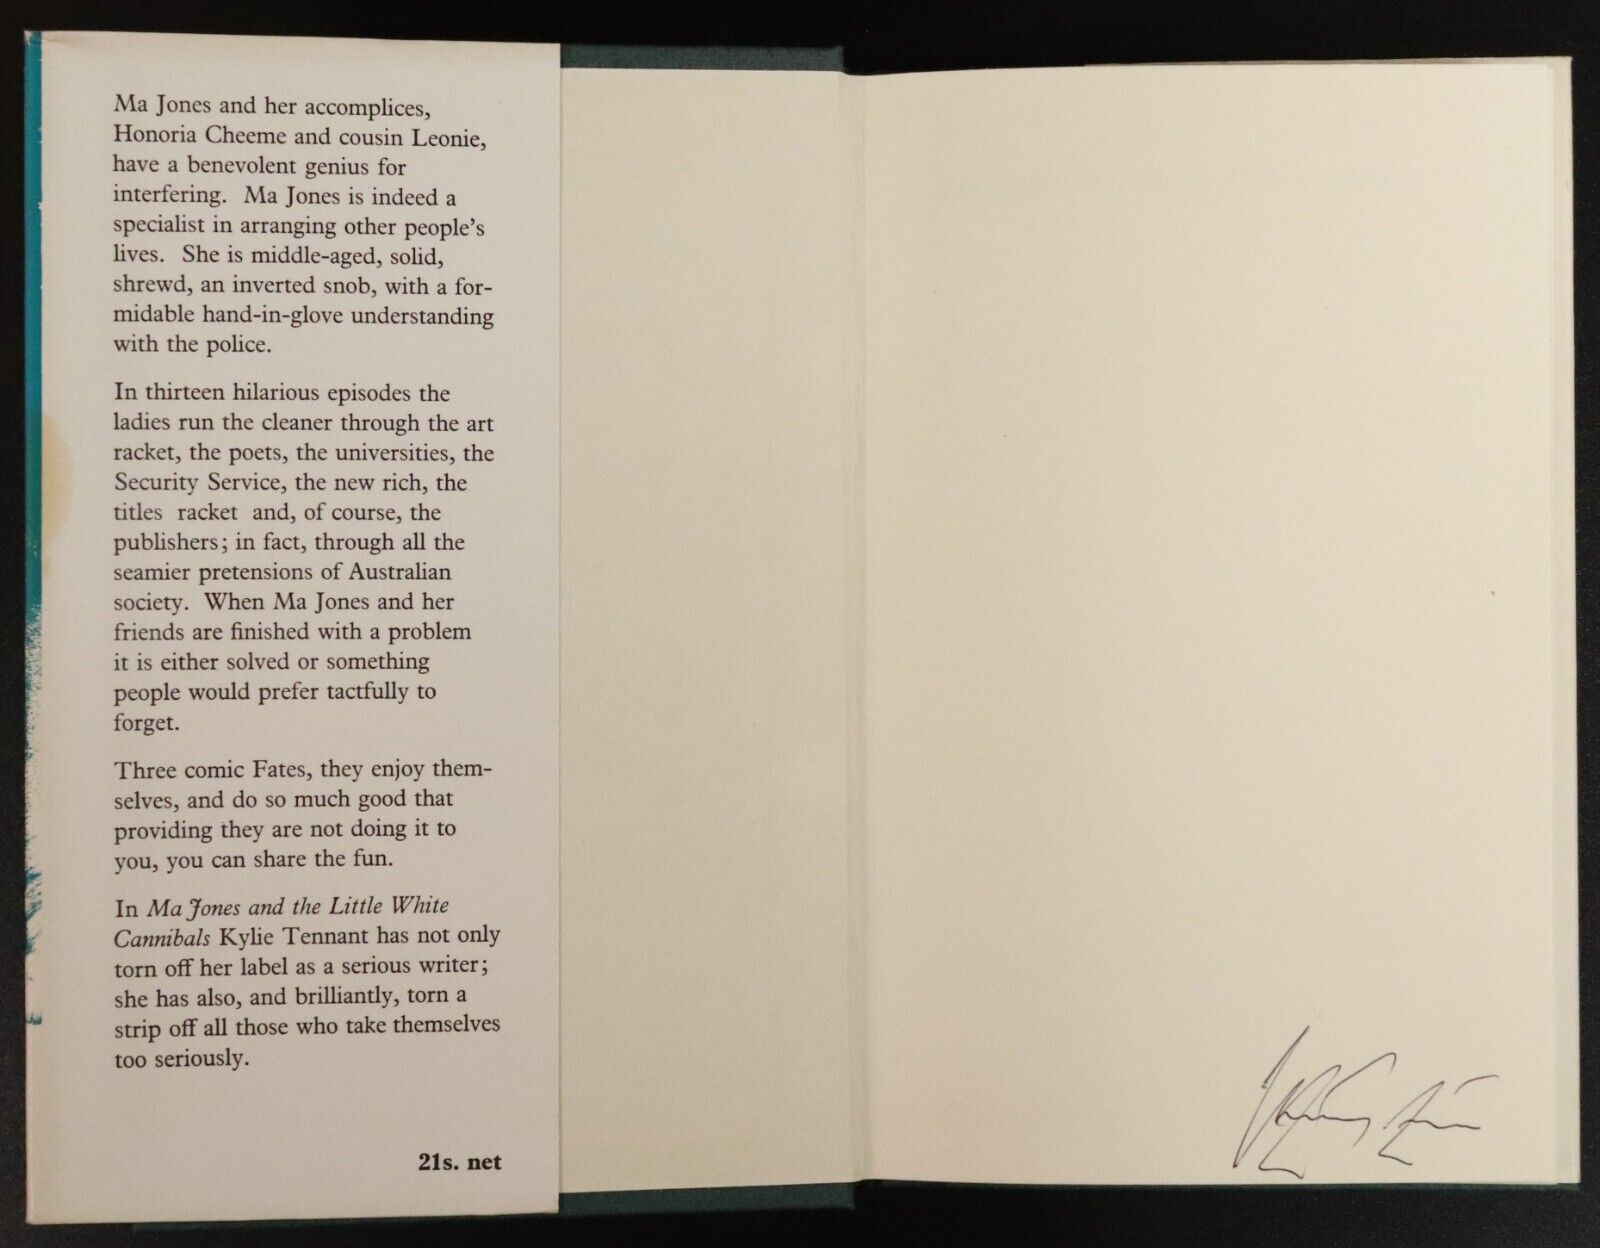 Ma Jones and her accomplices,
Honoria Cheeme and cousin Leonie,
have a benevolent genius for
interfering. Ma Jones is indeed a
specialist in arranging other people's
lives. She is middle-aged, solid,
shrewd, an inverted snob, with a for-
midable hand-in-glove understanding
with the police.
In thirteen hilarious episodes the
ladies run the cleaner through the art
racket, the poets, the universities, the
Security Service, the new rich, the
titles racket and, of course, the
publishers; in fact, through all the
seamier pretensions of Australian
society. When Ma Jones and her
friends are finished with a problem
it is either solved or something
people would prefer tactfully to
forget.
Three comic Fates, they enjoy them-
selves, and do so much good that
providing they are not doing it to
you, you can share the fun.
In Ma Jones and the Little White
Cannibals Kylie Tennant has not only
torn off her label as a serious writer;
she has also, and brilliantly, torn a
strip off all those who take themselves
too seriously.
21s. net